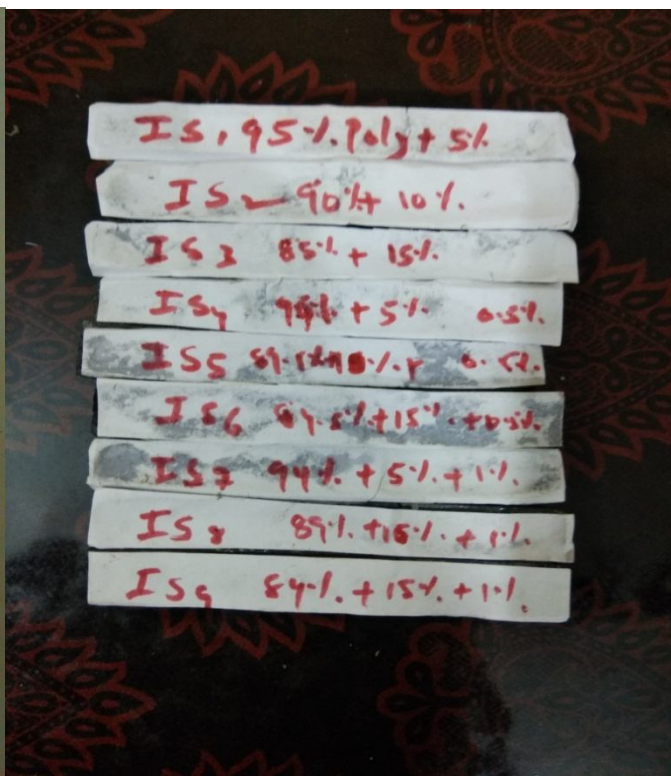 IS1 95% Poly + 5%
IS2 90% + 10%
IS3 85% + 15%
IS4 + 5% 0.5%
IS5 0.5%
IS6 84.5% + 15% + 0.5%
IS7 94% + 5% + 1%
IS8 89% + 1%
IS9 84% + 15% + 1%